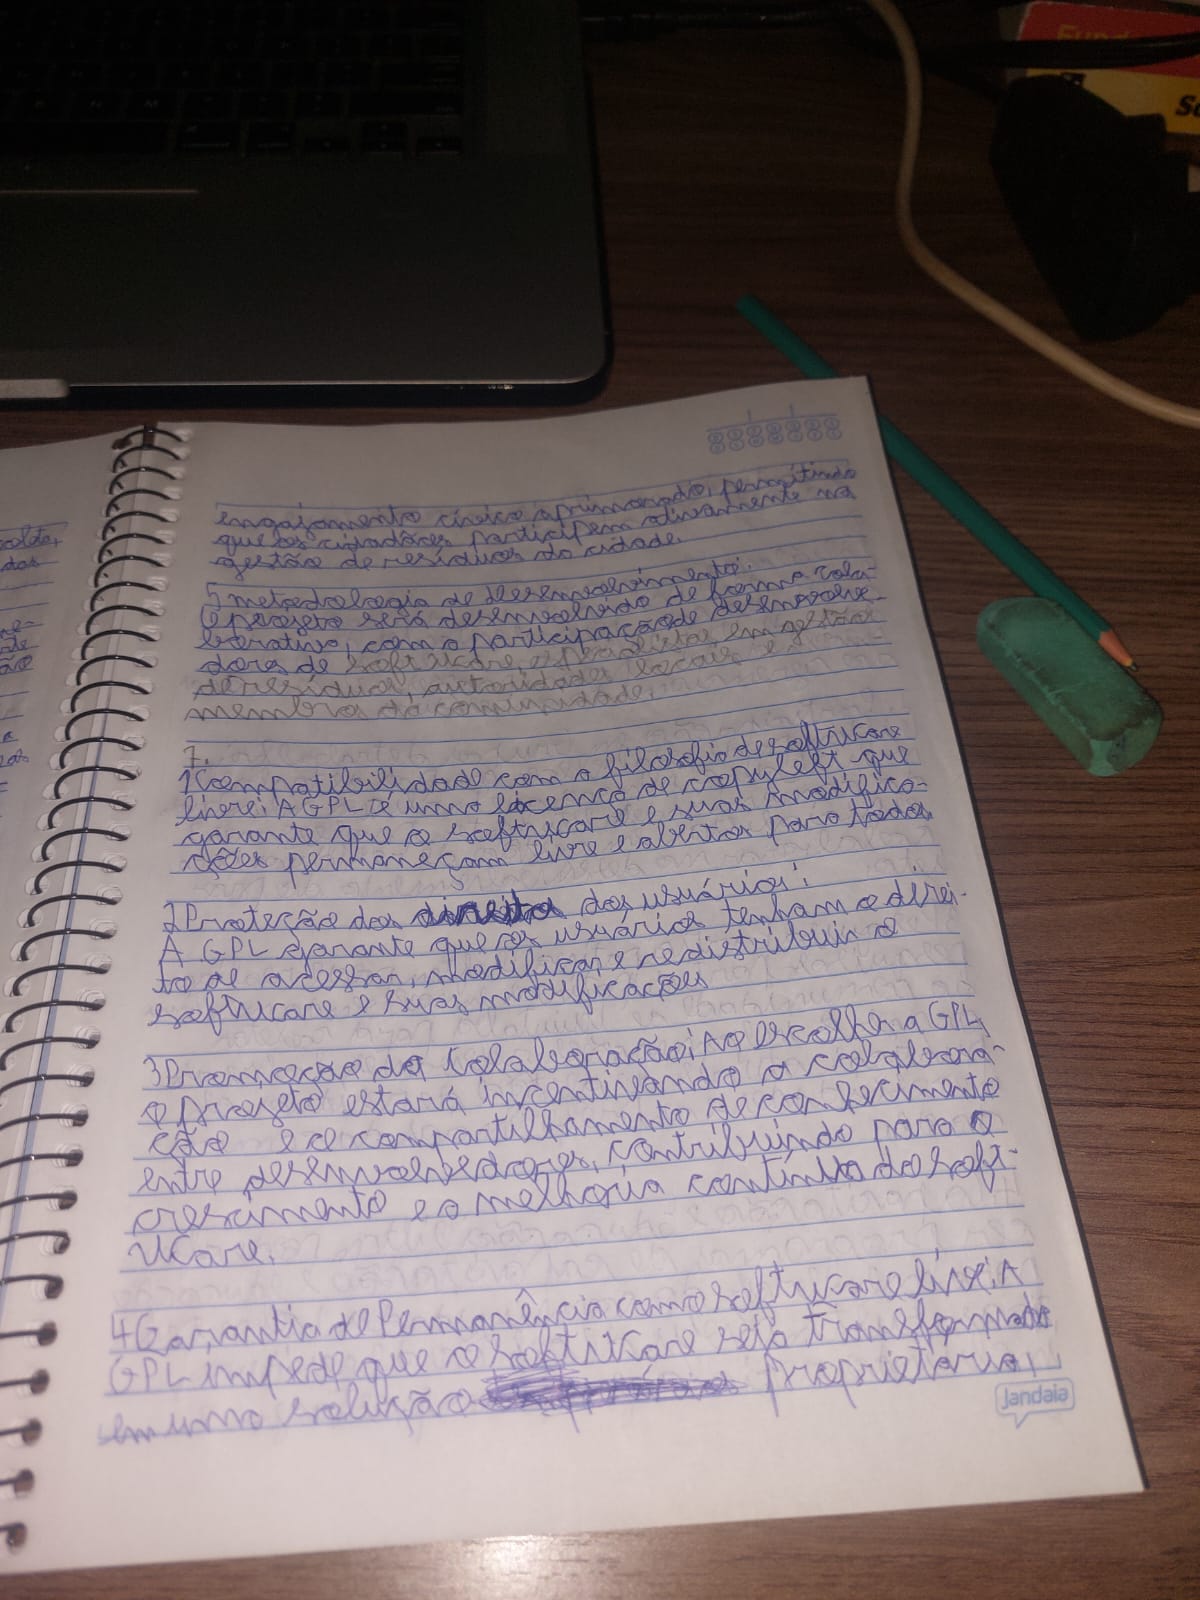 Fund
So
engajamento cívico aprimorado, permitindo
que os cidadãos participem ativamente na
gestão de resíduos da cidade.
5 metodologia de desenvolvimento:
O projeto será desenvolvido de forma cola-
borativa, com a participação de desenvolve-
dores de software, especialistas em gestão
de resíduos, autoridades locais e
membros da comunidade.
7.
1 Compatibilidade com a filosofia de software
livre: A GPL é uma licença de copyleft que
garante que o software e suas modifica-
ções permaneçam livre e abertos para todos
2 Proteção dos direitos dos usuários:
A GPL garante que os usuários tenham o direi-
to de acessar, modificar e redistribuir o
software e suas modificações
3 Promoção da Colaboração: Ao escolher a GPL,
o projeto estará incentivando a colabora-
ção e o compartilhamento de conhecimento
entre desenvolvedores, contribuindo para o
crescimento e a melhoria contínua do soft-
ware.
4 Garantia de Permanência como software livre: A
GPL impede que o software seja transformado
em uma solução proprietária,
Jandaia